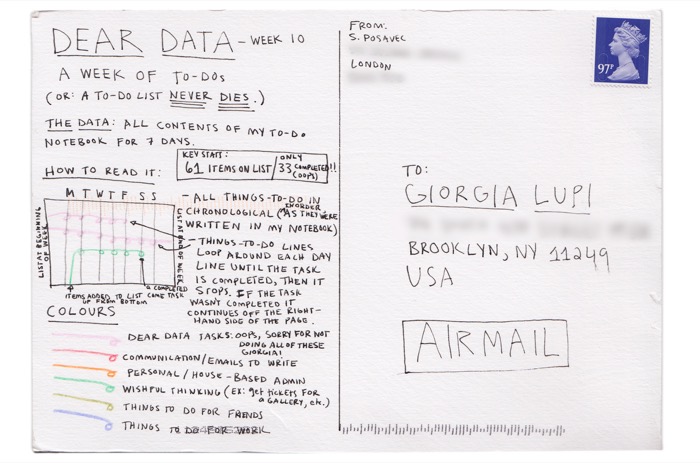 DEAR DATA - WEEK 10
A WEEK OF TO-DOS
(OR: A TO-DO LIST NEVER DIES.)
THE DATA: ALL CONTENTS OF MY TO-DO
NOTEBOOK FOR 7 DAYS.
HOW TO READ IT:
KEY STATS:
61 ITEMS ON LIST / ONLY 33 COMPLETED!! (OOPS)
M T W T F S S
LIST AT BEGINNING OF WEEK
LIST AT END OF WEEK
ITEMS ADDED TO LIST CAME
UP FROM BOTTOM
A COMPLETED
TASK
- ALL THINGS-TO-DO IN
CHRONOLOGICAL ORDER (AS THEY WERE
WRITTEN IN MY NOTEBOOK)
- THINGS-TO-DO LINES
LOOP AROUND EACH DAY
LINE UNTIL THE TASK
IS COMPLETED, THEN IT
STOPS. IF THE TASK
WASN'T COMPLETED IT
CONTINUES OFF THE RIGHT-
HAND SIDE OF THE PAGE.
COLOURS
DEAR DATA TASKS: OOPS, SORRY FOR NOT
DOING ALL OF THESE
GIORGIA!
COMMUNICATION/EMAILS TO WRITE
PERSONAL / HOUSE-BASED ADMIN
WISHFUL THINKING (EX: get TICKETS FOR
a GALLERY, etc.)
THINGS TO DO FOR FRIENDS
THINGS TO DO FOR WORK
FROM:
S. POSAVEC
LONDON
97P
TO:
GIORGIA LUPI
BROOKLYN, NY 11249
USA
AIRMAIL